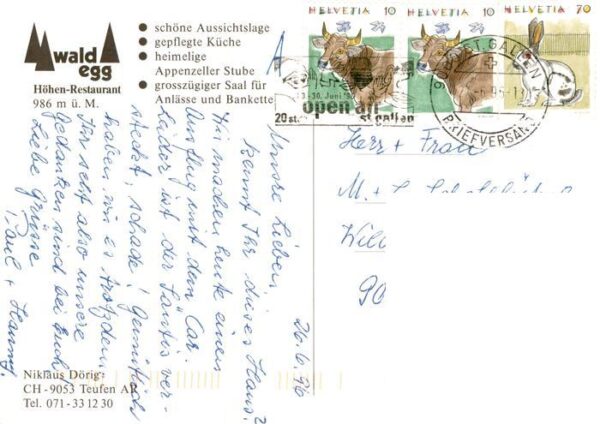 wald
egg
Höhen-Restaurant
986 m ü. M.
● schöne Aussichtslage
● gepflegte Küche
● heimelige
Appenzeller Stube
● grosszügiger Saal für
Anlässe und Bankette
Niklaus Dörig
CH-9053 Teufen AR
Tel. 071-33 12 30
26.6.96
Unsere Lieben,
kennt Ihr dieses Haus?
Wir machen heute einen
Ausflug mit dem Car.
Leider ist der Säntis ver-
steckt, schade! Gemütlich
haben wir es trotzdem.
Ihr seht also unsere
Gedanken sind bei Euch!
Liebe Grüsse
Paul + Hanny.
A
HELVETIA 10
HELVETIA 10
HELVETIA 70
open air
st. gallen
20 st.
30. Juni
ST. GALLEN
BRIEFVERSAND
Herr + Frau
M. +
90